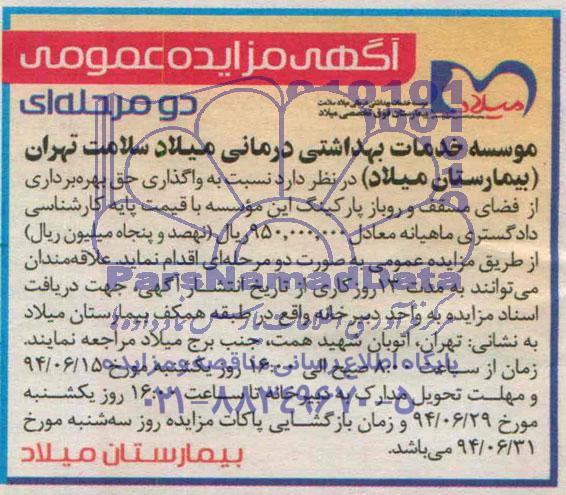 آگهی مزایده عمومی
دو مرحله‌ای
میلاد
موسسه خدمات بهداشتی درمانی میلاد سلامت
بیمارستان فوق تخصصی میلاد
موسسه خدمات بهداشتی درمانی میلاد سلامت تهران
(بیمارستان میلاد) در نظر دارد نسبت به واگذاری حق بهره‌برداری
از فضای مسقف و روباز پارکینگ این مؤسسه با قیمت پایه کارشناسی
دادگستری ماهیانه معادل ۹۵۰,۰۰۰,۰۰۰ ریال (نهصد و پنجاه میلیون ریال)
از طریق مزایده عمومی به صورت دو مرحله‌ای اقدام نماید. علاقه‌مندان
می‌توانند به مدت ۱۲ روز کاری از تاریخ انتشار آگهی، جهت دریافت
اسناد مزایده به واحد دبیرخانه واقع در طبقه همکف بیمارستان میلاد
به نشانی: تهران، اتوبان شهید همت، جنب برج میلاد مراجعه نمایند.
زمان از ساعت ۸:۰۰ صبح الی ۱۶:۰۰ روز یکشنبه مورخ ۹۴/۰۶/۱۵
و مهلت تحویل مدارک به دبیرخانه تا ساعت ۱۶:۰۰ روز یکشنبه
مورخ ۹۴/۰۶/۲۹ و زمان بازگشایی پاکات مزایده روز سه‌شنبه مورخ
۹۴/۰۶/۳۱ می‌باشد.
بیمارستان میلاد
ParsNamadData
پایگاه اطلاع رسانی مناقصه و مزایده
۰۲۱-۸۸۳۴۹۶۷۰-۵